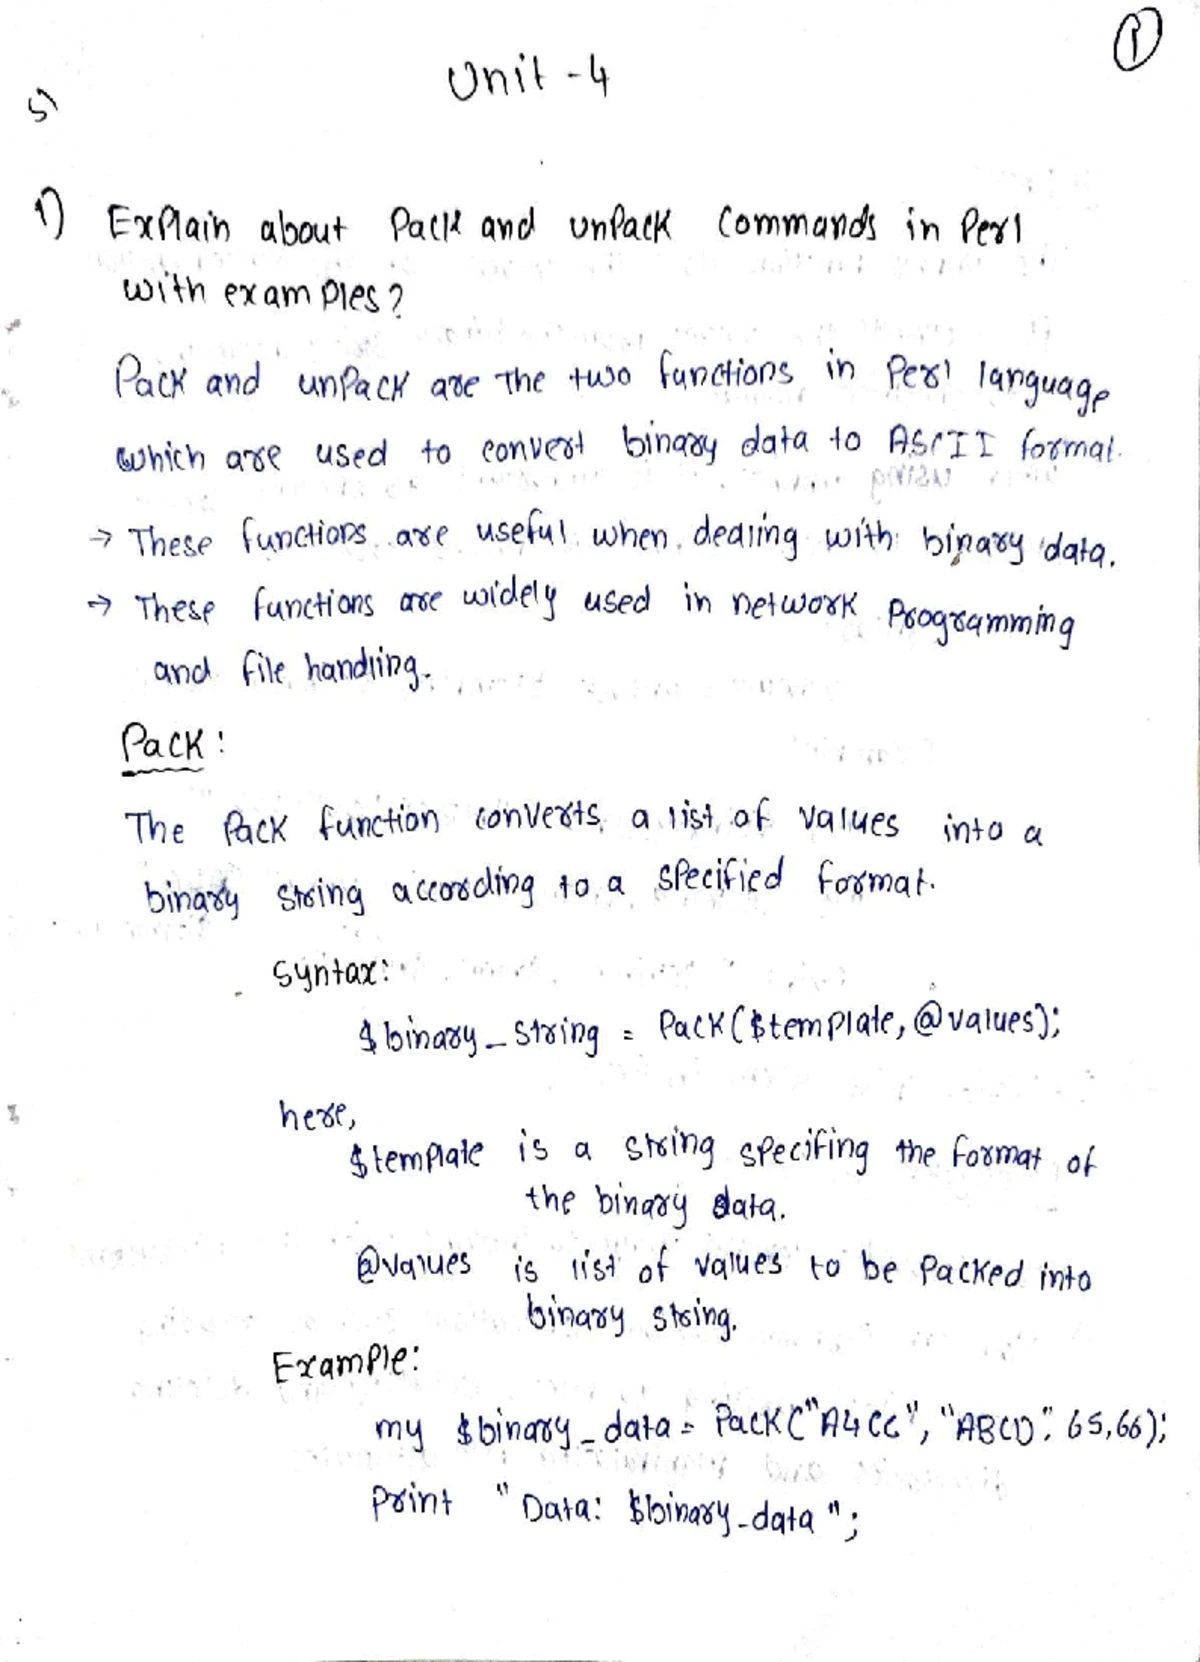 1
Unit - 4
5)
1) Explain about Pack and unPack Commands in Perl
with examples?
Pack and unPack are The two functions in Perl language
which are used to convert binary data to ASCII format.
→ These functions are useful when dealing with binary data.
→ These functions are widely used in network Programming
and file handling.
Pack:
The Pack function converts a list of values into a
binary string according to a specified format.
Syntax:
$binary_string = Pack($template, @values);
here,
$template is a string specifing the format of
the binary data.
@values is list of values to be Packed into
binary string.
Example:
my $binary_data = Pack("A4CC", "ABCD", 65,66);
Print "Data: $binary_data";